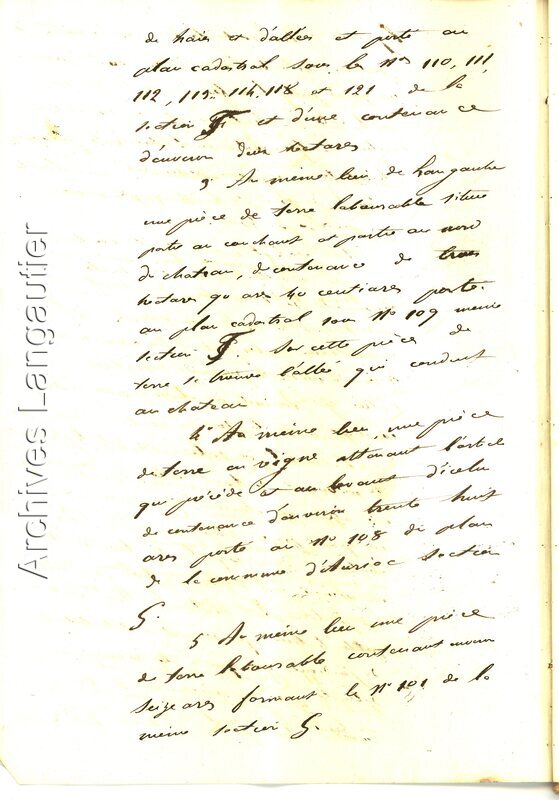 de haies et d'allées et porté au
plan cadastral sous le nos 110, 111,
112, 113, 114, 118 et 121 de la
section F et d'une contenance
d'environ deux hectares
3° Au même lieu de Langautier
une pièce de terre labourable située
partie au couchant et partie au nord
du chateau, de contenance de trois
hectares 90 ares 40 centiares porté
au plan cadastral sous No 109 même
section F. Sur cette pièce de
terre se trouve l'allée qui conduit
au chateau
4° Au même lieu une pièce
de terre en vigne attenant l'article
qui précède et au levant d'icelui
de contenance d'environ trente huit
ares porté au No 108 du plan
de la commune d'Auriac section
G.
5 Au même lieu une pièce
de terre labourable contenant environ
seize ares formant le No 101 de la
même section G.
Archives Langautier